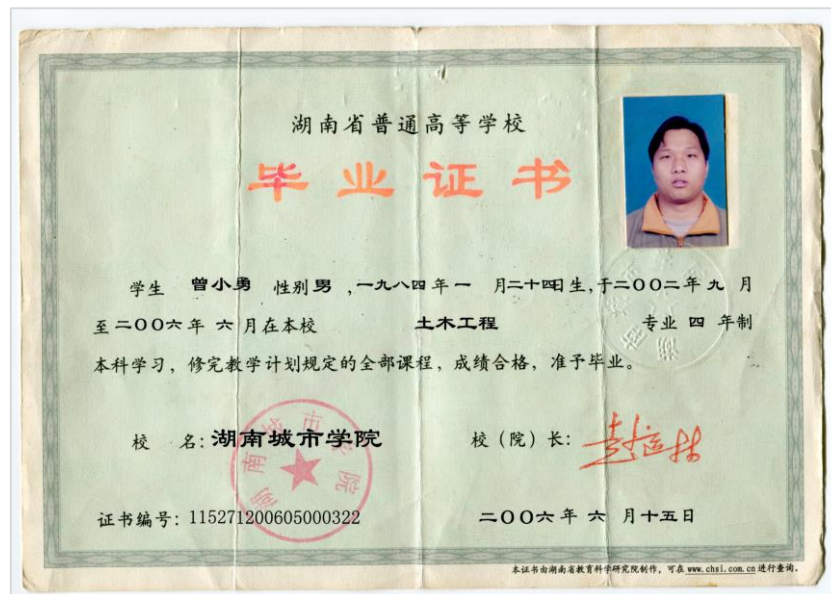 湖南省普通高等学校
毕业证书
学生 曾小勇 性别男,一九八四年一 月二十四日生,于二〇〇二年九 月
至二〇〇六年 六 月在本校 土木工程 专业 四 年制
本科学习,修完教学计划规定的全部课程,成绩合格,准予毕业。
校 名:湖南城市学院
校(院)长:
湖南城市学院
证书编号:115271200605000322
二〇〇六年 六 月十五日
本证书由湖南省教育科学研究院制作,可在 www.chsi.com.cn 进行查询。